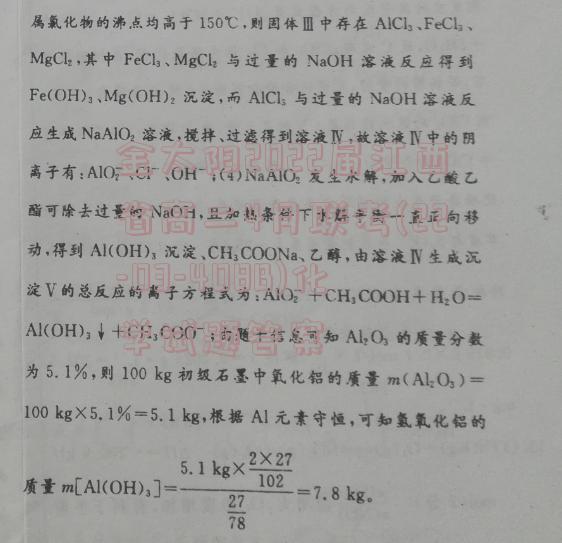 属氯化物的沸点均高于150℃,则固体Ⅲ中存在 AlCl₃、FeCl₃、
MgCl₂,其中 FeCl₃、MgCl₂ 与过量的 NaOH 溶液反应得到
Fe(OH)₃、Mg(OH)₂ 沉淀,而 AlCl₃ 与过量的 NaOH 溶液反
应生成 NaAlO₂ 溶液,搅拌、过滤得到溶液Ⅳ,故溶液Ⅳ中的阴
离子有:AlO₂⁻、Cl⁻、OH⁻;(4)NaAlO₂ 发生水解,加入乙酸乙
酯可除去过量的 NaOH,且加热条件下水解平衡一直正向移
动,得到 Al(OH)₃ 沉淀、CH₃COONa、乙醇,由溶液Ⅳ生成沉
淀Ⅴ的总反应的离子方程式为:AlO₂⁻+CH₃COOH+H₂O=
Al(OH)₃↓+CH₃COO⁻;由题干信息可知 Al₂O₃ 的质量分数
为 5.1%,则 100 kg 初级石墨中氧化铝的质量 m(Al₂O₃)=
100 kg×5.1%=5.1 kg,根据 Al 元素守恒,可知氢氧化铝的
质量 m[Al(OH)₃]=(5.1 kg×(2×27)/102)/(27/78)=7.8 kg。
金太阳2022届江西
省高三4月联考(22
-03-408B)化
学试题答案